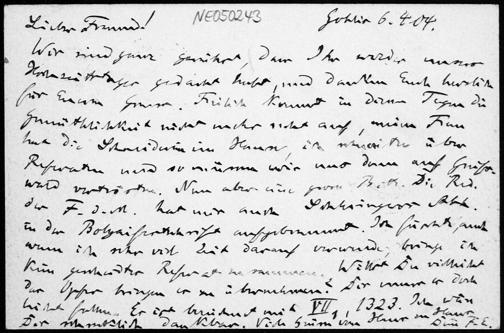 Lieber Freund! NE050243 Gohlis 6.4.04.
Wir sind ganz gerührt, dass Ihr wieder unseres
Hochzeitstages gedacht habt, und danken Euch herzlich
für Euren Gruss. Freilich kommt in diesen Tagen die
Gemüthlichkeit nicht mehr recht auf, meine Frau
hat die Schneiderin im Hause, ich schreibe über
Referaten und so müssen wir uns dann auf
wald vertrösten. Nun aber eine grosse Bitte. Die Red.
der F. d. M. hat mir auch Schlesingers Abh.
in der Bolyaifestschrift aufgebrummt. Ich fürchte, auch
wenn ich sehr viel Zeit darauf verwende, bringe ich
kein gescheidtes Referat zusammen. Willst Du vielleicht
das Opfer bringen es zu übernehmen? Dir muss es doch
leicht fallen. Es ist bezeichnet mit VII, 1323. Ich wäre
Dir schrecklich dankbar. Viele Grüsse von Haus zu Haus
Dein F.E.